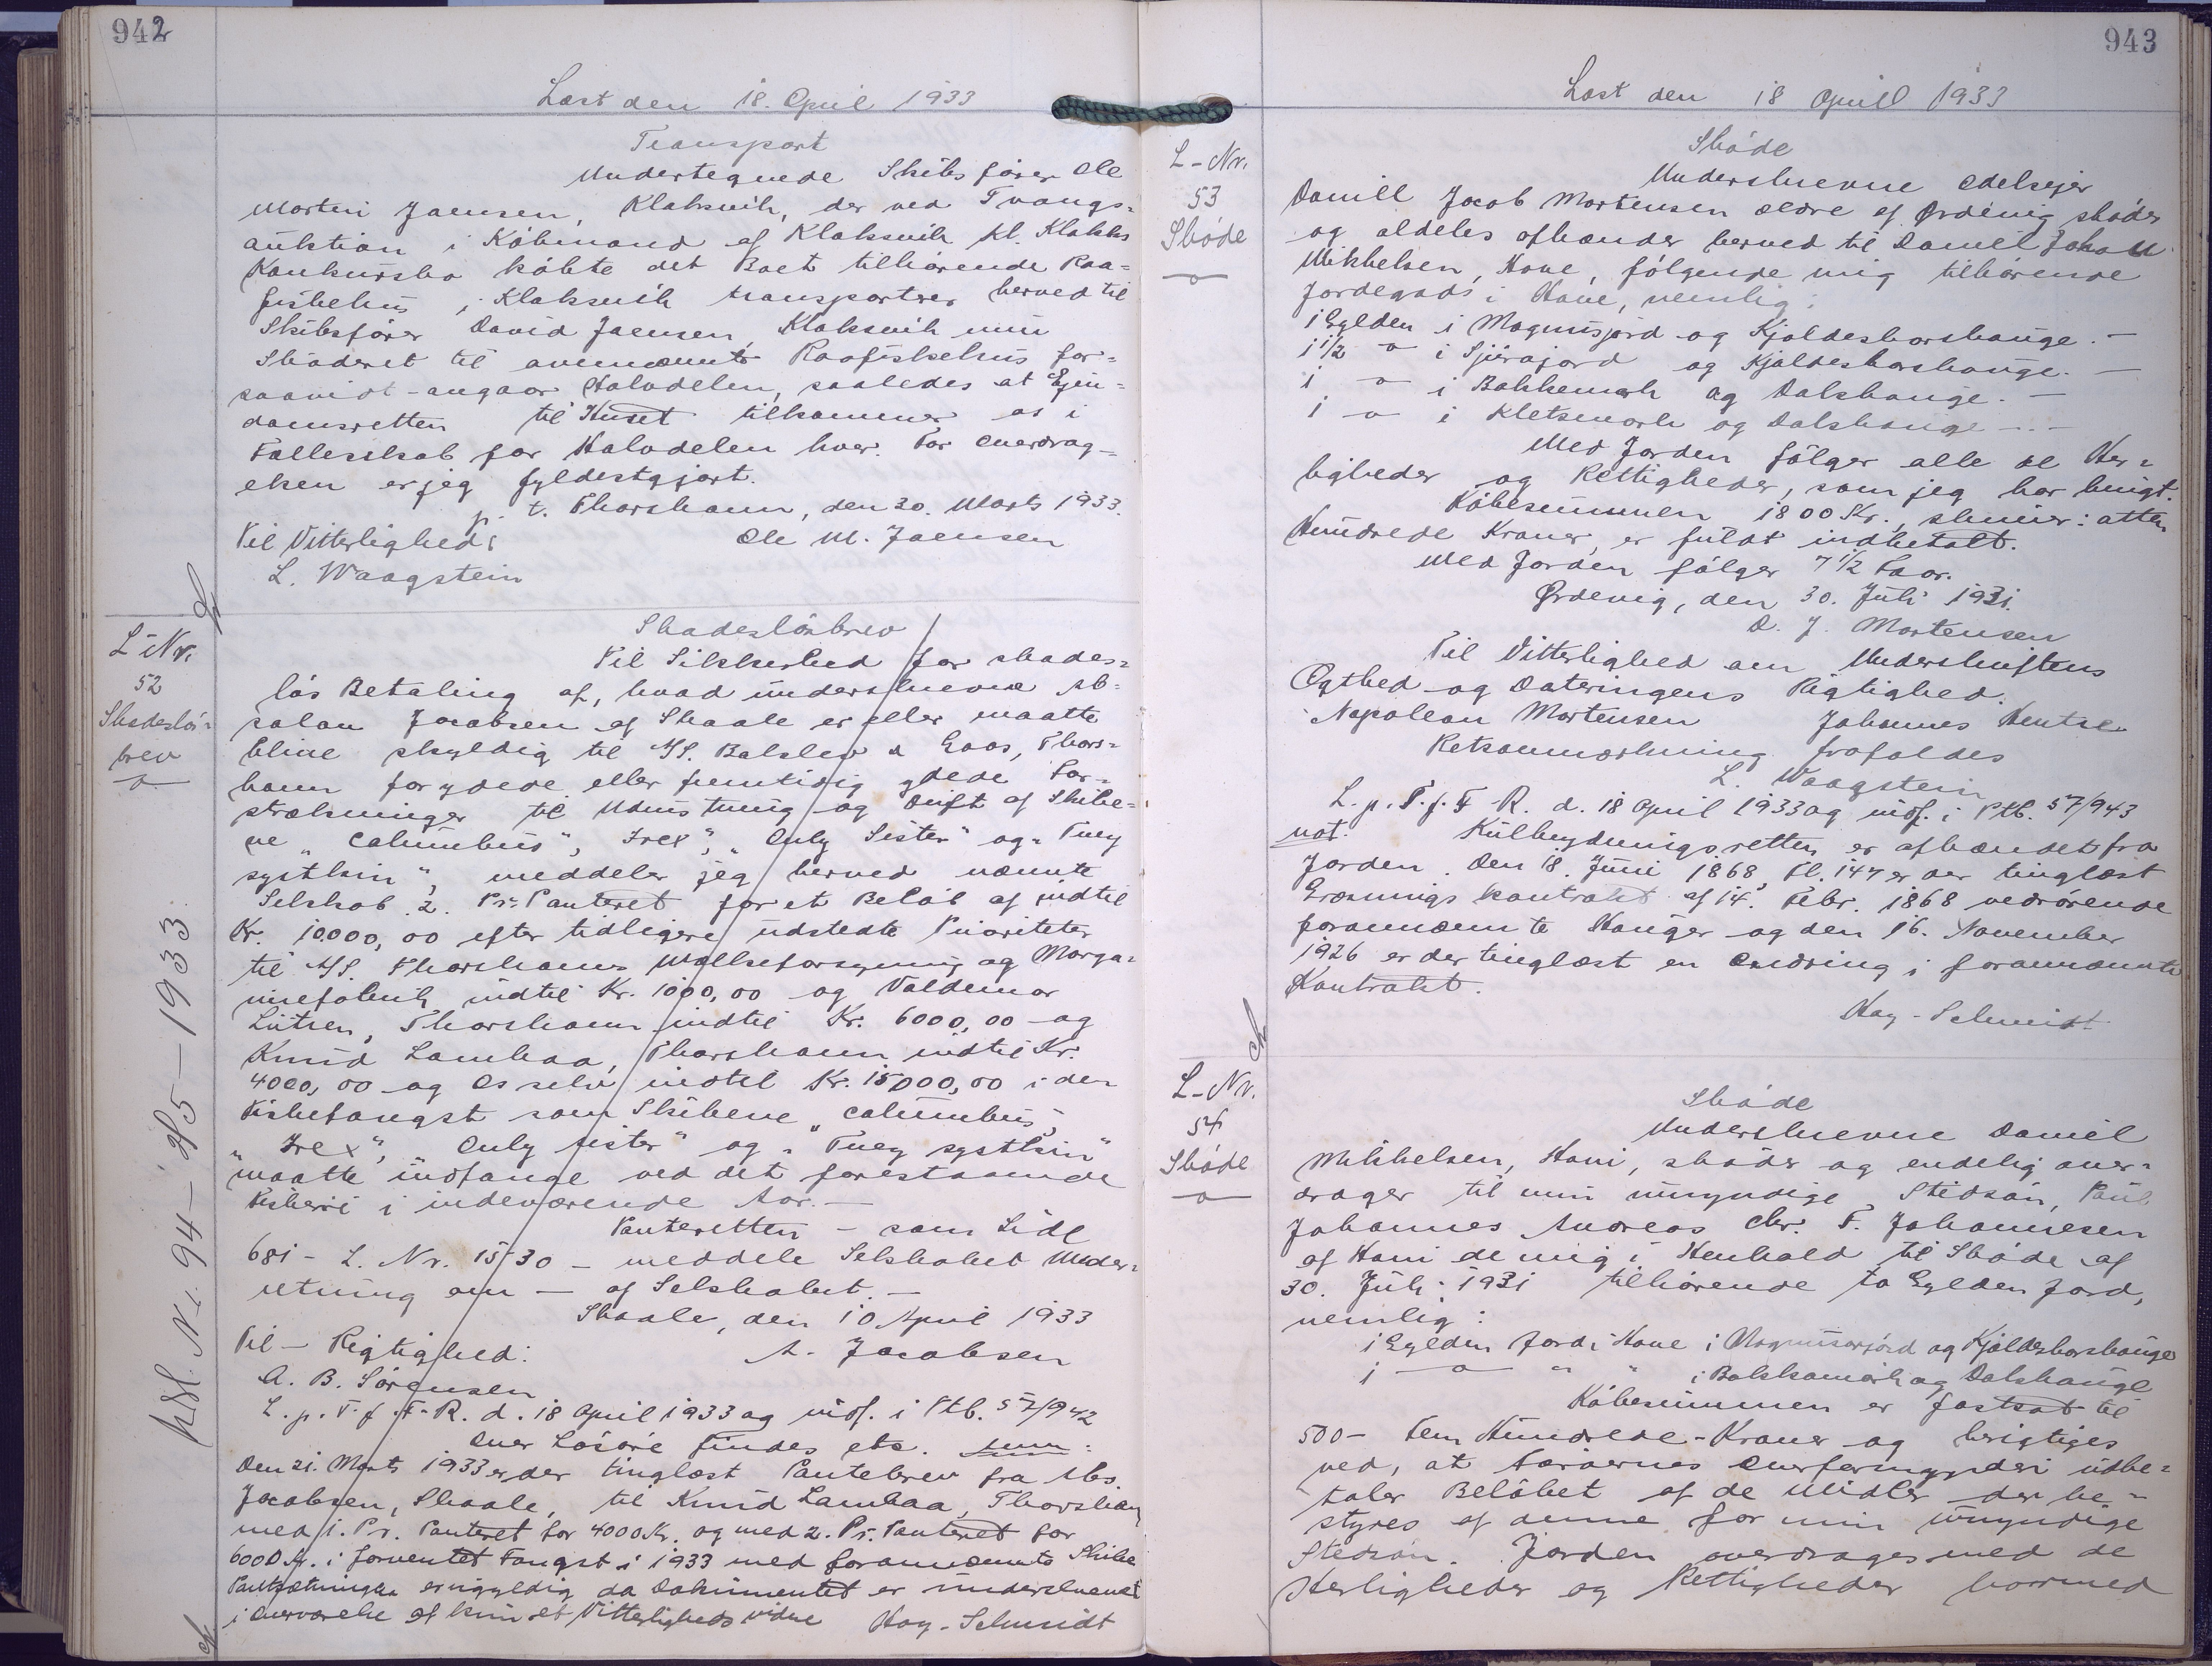 942
Læst den 18. April 1933
Transport
Undertegnede Skibsfører Ole
Martin Joensen, Klaksvik, der ved Tvangs=
auktion i Købmand af Klaksvik Kl. Klakks
Konkursbo købte det Boet tilhørende Raa=
fiskehus i Klaksvik transporterer herved til
Skibsfører David Joensen, Klaksvik min
Skøderet til ovennævnte Raafiskehus for=
saavidt angaar Halvdelen, saaledes at Ejen=
domsretten til Huset tilkommer os i
Fællesskab for Halvdelen hver. For Overdrag=
elsen er jeg fyldestgjort.
p. t. Thorshavn, den 30. Marts 1933.
Til Vitterlighed: Ole M. Joensen
L. Waagstein
L-Nr.
52
Skadesløs=
brev
Skadesløsbrev
Til Sikkerhed for skades=
løs Betaling af, hvad underskrevne Ab=
salon Jacobsen af Skaale er eller maatte
blive skyldig til A/S. Balslev & Goos, Thors=
havn for ydede eller fremtidig ydede For=
strækninger til Udrustning og Drift af Skibe=
ne "Columbus", "Irex", "Only Sister" og "Tvey
systkin", meddeler jeg herved nævnte
Selskab 2. Pr. Panteret for et Beløb af indtil
Kr. 10000,00 efter tidligere udstedte Prioriteter
til A/S. Thorshavns Mælkeforsyning og Marga=
rinefabrik indtil Kr. 1000,00 og Valdemar
Lützen, Thorshavn indtil Kr. 6000,00 og
Knud Lambaa, Thorshavn indtil Kr.
4000,00 og Os selv indtil Kr. 15000,00 i den
Fiskefangst som Skibene "Columbus",
"Irex", "Only sister" og "Tvey systkin"
maatte indfange ved det forestaaende
Fiskeri i indeværende Aar.-
Panteretten - som Side
681 - L. Nr. 15/30 - meddele Selskabet Under=
retning om - af Selskabet.-
Skaale, den 10 April 1933
Til - Rigtighed: A. Jacobsen
A. B. Sørensen
L. p. T. f. F. R. d. 18 April 1933 og indf. i Ptb. 57/942
Over Løsøre findes etc.
Den 21. Marts 1933 er der tinglæst Pantebrev fra Abs.
Jacobsen, Skaale, til Knud Lambaa, Thorshavn
med 1. Pr. Panteret for 4000 Kr. og med 2. Pr. Panteret for
6000 Kr. i forventet Fangst i 1933 med forannævnte Skibe
Pantsætningen er ugyldig da Dokumentet er underskrevet
i Overværelse af kun et Vitterligheds vidne Hay-Schmidt
Nr. 94 - 25 - 1933
943
Læst den 18 April 1933
L-Nr.
53
Skøde
Skøde
Underskrevne Odelsejer
Daniel Jacob Mortensen ældre af Ørdevig skøder
og aldeles afhænder herved til Daniel Johan
Mikkelsen, Hove, følgende mig tilhørende
Jordegods i Hove, nemlig:
1 Gylden i Magnusjord og Kjaldesborshauge.-
1 1/2 " i Sjúrajord og Kjaldesborshauge.-
1 " i Bakkemørk og Dalshauge.-
1 " i Kletsmørk og Dalshauge.-
Med Jorden følger alle de Her=
ligheder og Rettigheder, som jeg har brugt.
Købesummen 1800 Kr., skriver: atten
Hundrede Kroner, er fuldt indbetalt.
Med Jorden følger 7 1/2 Faar.
Ørdevig, den 30. Juli 1931.
D. J. Mortensen
Til Vitterlighed om Underskriftens
Ægthed og Dateringens Rigtighed.
Napoleon Mortensen Johannes Hentze
Retsanmærkning frafaldes
L. Waagstein
L. p. T. f. F. R. d. 18 April 1933 og indf. i Ptb. 57/943
not. Kulbrydningsretten er afhændet fra
Jorden. Den 18. Juni 1868, Fl. 147 er der tinglæst
Græsnings kontrakt af 14. Febr. 1868 vedrørende
forannævnte Hauger og den 16. November
1926 er der tinglæst en Ændring i forannævnte
Kontrakt.
Hay-Schmidt
L-Nr.
54
Skøde
Skøde
Underskrevne Daniel
Mikkelsen, Hove, skøder og endelig over=
drager til min umyndige Stedsøn, Paul
Johannes Andreas Chr. F. Johannesen
af Hove de mig i Henhold til Skøde af
30. Juli 1931 tilhørende to Gylden Jord,
nemlig:
1 Gylden Jord i Hove i Magnusarjørd og Kjaldesborshauge
1 " " " i Bakkamørk og Dalshauge
Købesummen er fastsat til
500 - Fem Hundrede - Kroner og berigtiges
ved, at Færøernes Overformynderi udbe=
taler Beløbet af de Midler der be=
styres af denne for min umyndige
Stedsøn. Jorden overdrages med de
Herligheder og Rettigheder hvormed